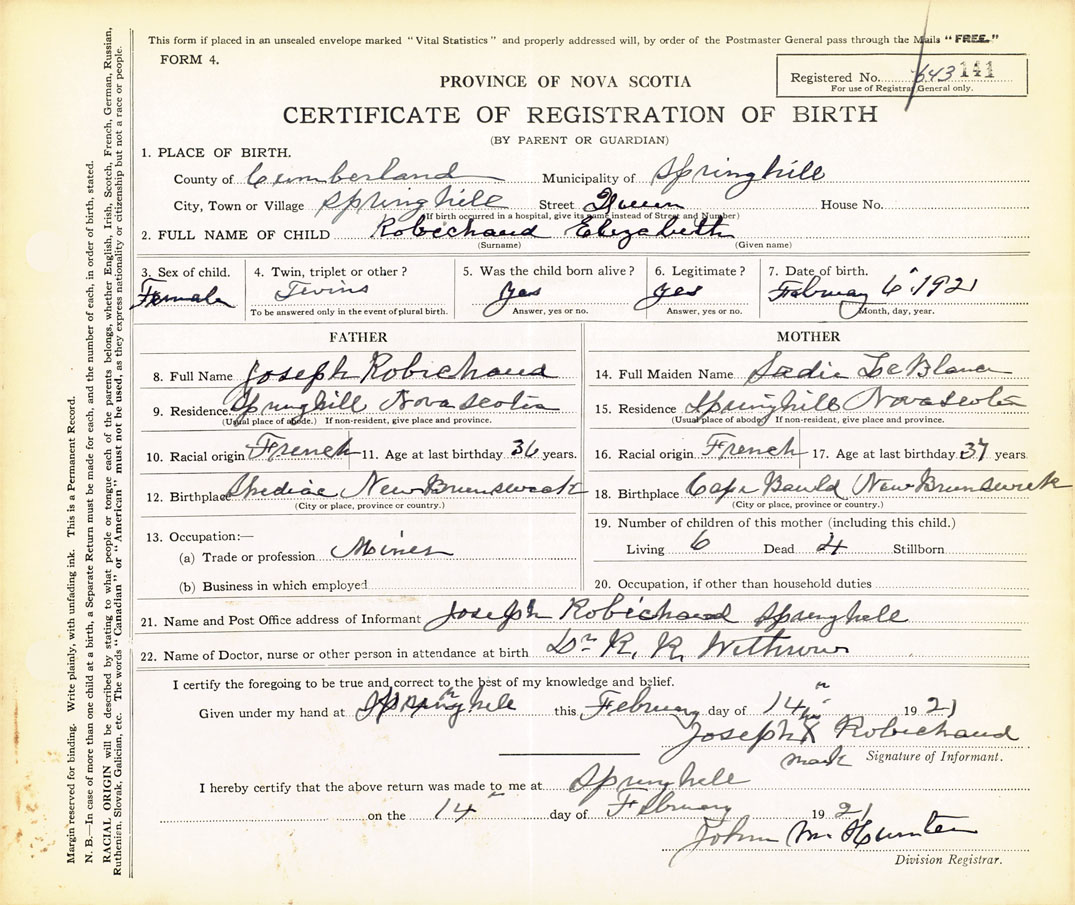 This form if placed in an unsealed envelope marked "Vital Statistics" and properly addressed will, by order of the Postmaster General pass through the Mails "FREE."
FORM 4.
Registered No. 643 141
For use of Registrar General only.
PROVINCE OF NOVA SCOTIA
CERTIFICATE OF REGISTRATION OF BIRTH
(BY PARENT OR GUARDIAN)
1. PLACE OF BIRTH.
County of Cumberland Municipality of Springhill
City, Town or Village Springhill Street Queen House No.
(If birth occurred in a hospital, give its name instead of Street and Number)
2. FULL NAME OF CHILD Robichaud Elizabeth
(Surname) (Given name)
3. Sex of child. 4. Twin, triplet or other? 5. Was the child born alive? 6. Legitimate? 7. Date of birth.
Female Twins Yes Yes February 6" 1921
To be answered only in the event of plural birth. Answer, yes or no. Answer, yes or no. Month, day, year.
FATHER
8. Full Name Joseph Robichaud
9. Residence Springhill Nova Scotia
(Usual place of abode.) If non-resident, give place and province.
10. Racial origin French 11. Age at last birthday 36 years.
12. Birthplace Shediac New Brunswick
(City or place, province or country.)
13. Occupation:—
(a) Trade or profession Miner
(b) Business in which employed
MOTHER
14. Full Maiden Name Sadie LeBlanc
15. Residence Springhill Nova Scotia
(Usual place of abode) If non-resident, give place and province.
16. Racial origin French 17. Age at last birthday 37 years
18. Birthplace Cape Bauld New Brunswick
(City or place, province or country.)
19. Number of children of this mother (including this child.)
Living 6 Dead 4 Stillborn
20. Occupation, if other than household duties
21. Name and Post Office address of Informant Joseph Robichaud Springhill
22. Name of Doctor, nurse or other person in attendance at birth Dr R. K. Withrow
I certify the foregoing to be true and correct to the best of my knowledge and belief.
Given under my hand at Springhill this February day of 14th 1921
Joseph X Robichaud
mark Signature of Informant.
I hereby certify that the above return was made to me at Springhill
on the 14" day of February 1921
John M Hunter
Division Registrar.
Margin reserved for binding. Write plainly, with unfading ink. This is a Permanent Record.
N. B.—In case of more than one child at a birth, a Separate Return must be made for each, and the number of each, in order of birth, stated.
RACIAL ORIGIN will be described by stating to what people or tongue each of the parents belongs, whether English, Irish, Scotch, French, German, Russian,
Ruthenian, Slovak, Galician, etc. The words "Canadian" or "American" must not be used, as they express nationality or citizenship but not a race or people.